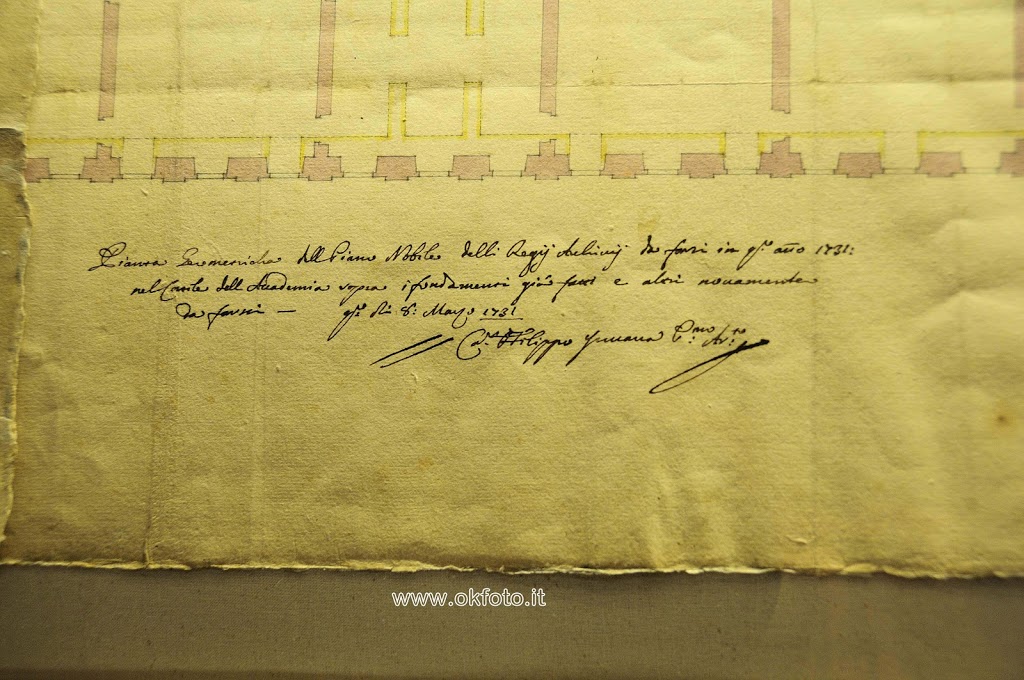 Pianta Geometricha dell Piano Nobile delli Reggij Archivij da farsi in q.to año 1731:
nel Cortile dell Accademia sopra i fondamenti già fatti e altri novamente
da farsi — q.to dì 8: Marzo 1731
Ca.r D Filippo Juvara P.mo Ar.to
www.okfoto.it